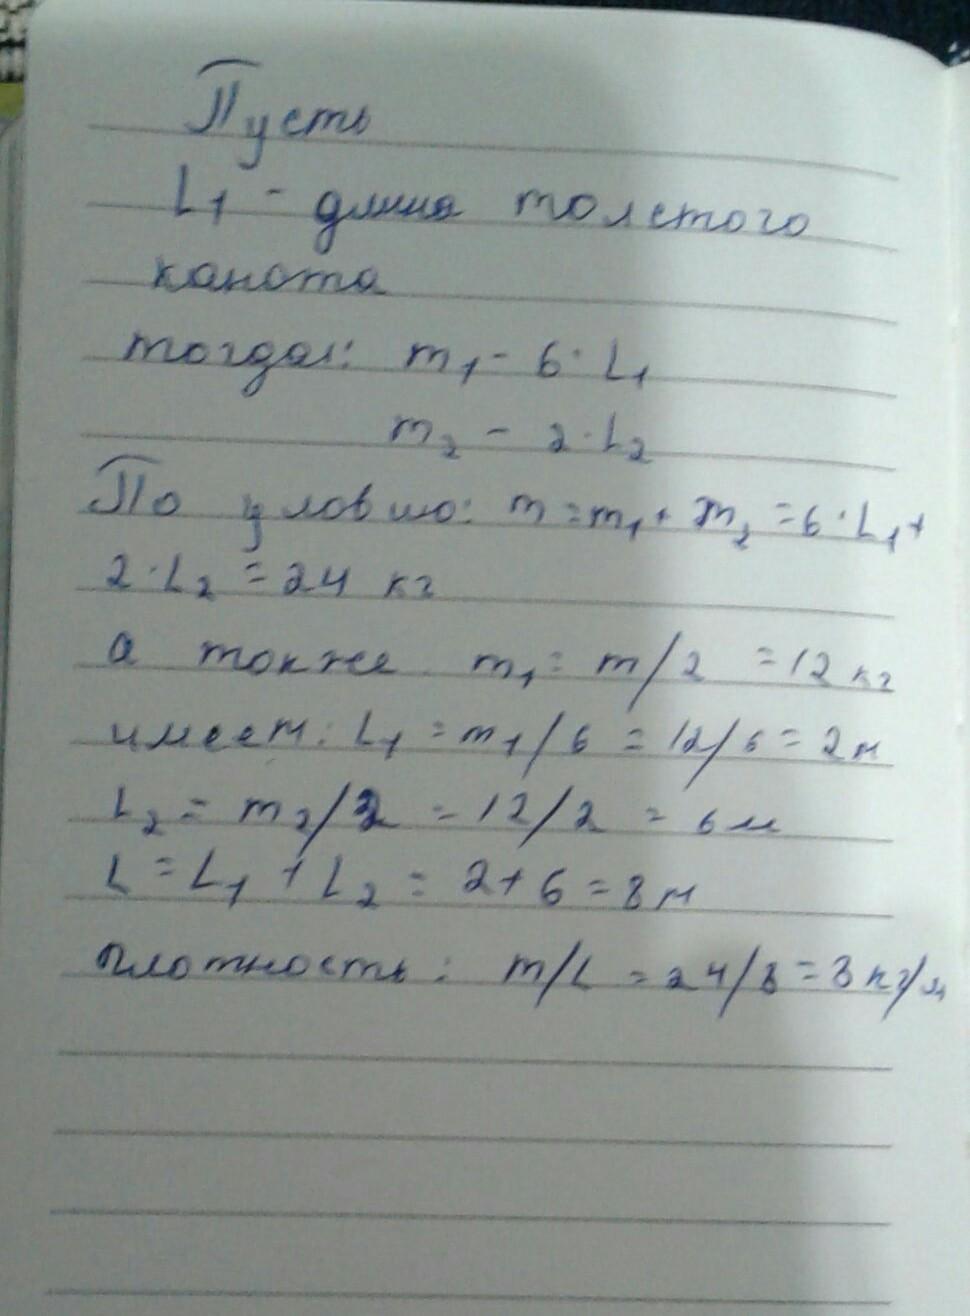 Пусть
L1 - длина толстого
каната
тогда: m1 - 6·L1
m2 - 2·L2
По условию: m = m1 + m2 = 6·L1 +
2·L2 = 24 кг
а также m1 = m/2 = 12 кг
имеем: L1 = m1/6 = 12/6 = 2м
L2 = m2/2 = 12/2 = 6м
L = L1 + L2 = 2+6 = 8м
плотность: m/L = 24/8 = 3 кг/м